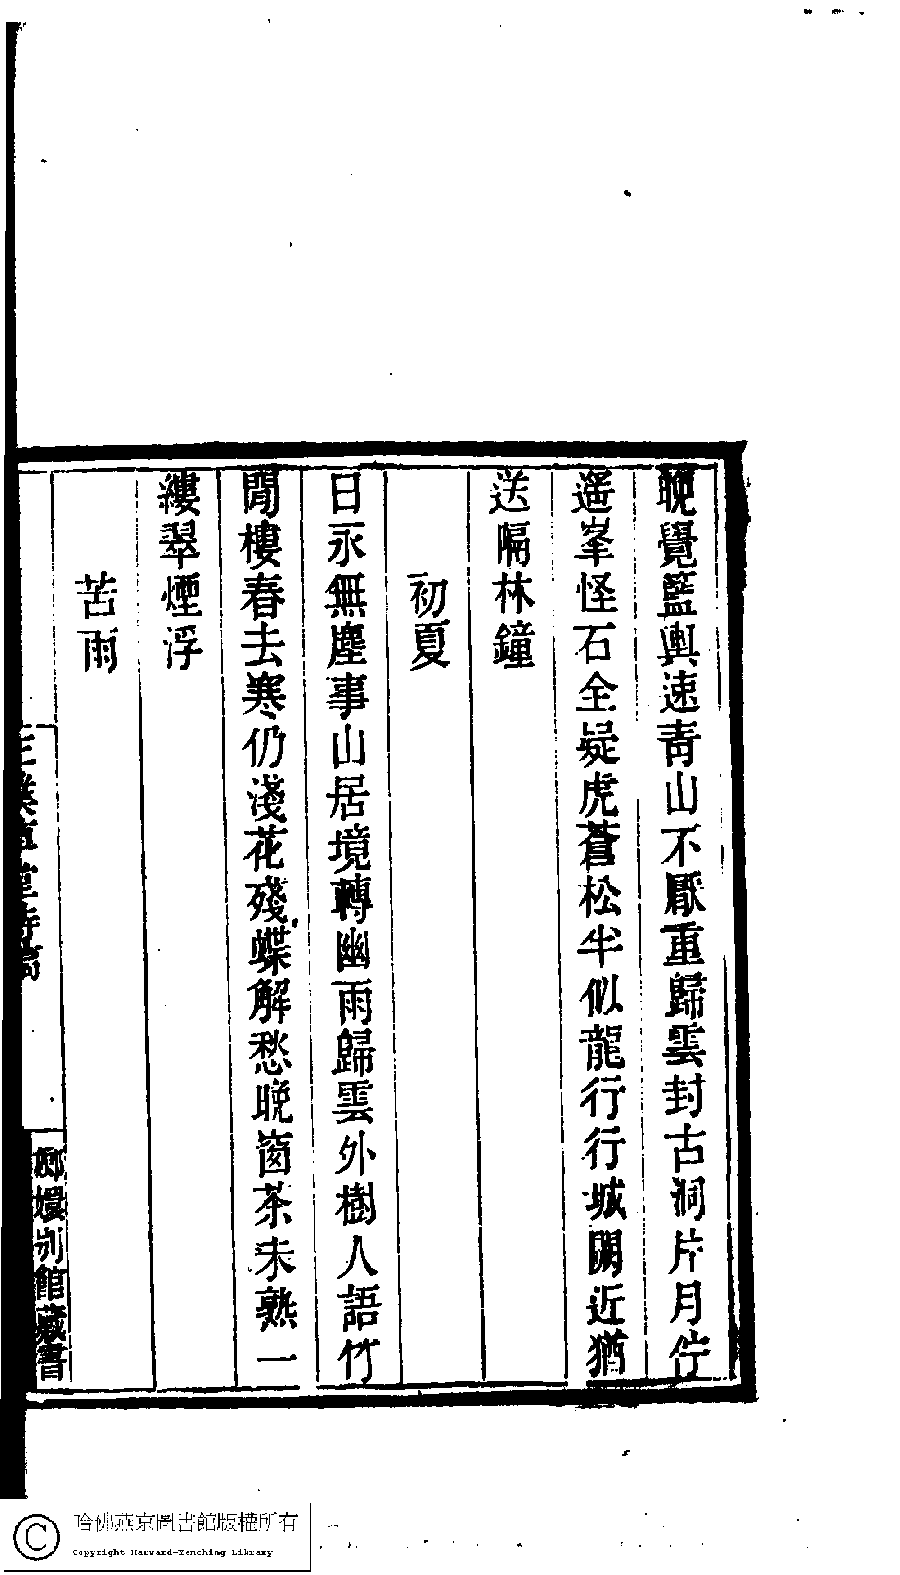 晚覺籃輿速青山不厭重歸雲封古洞片月佇
遥峯怪石全疑虎蒼松半似龍行行城闕近猶
送隔林鐘
初夏
日永無塵事山居境轉幽雨歸雲外樹人語竹
閒樓春去寒仍淺花殘蝶解愁晚窗茶未熟一
縷翠煙浮
苦雨
草堂詩稿
嫏嬛別館藏書
哈佛燕京圖書館版權所有
Copyright Harvard-Yenching Library